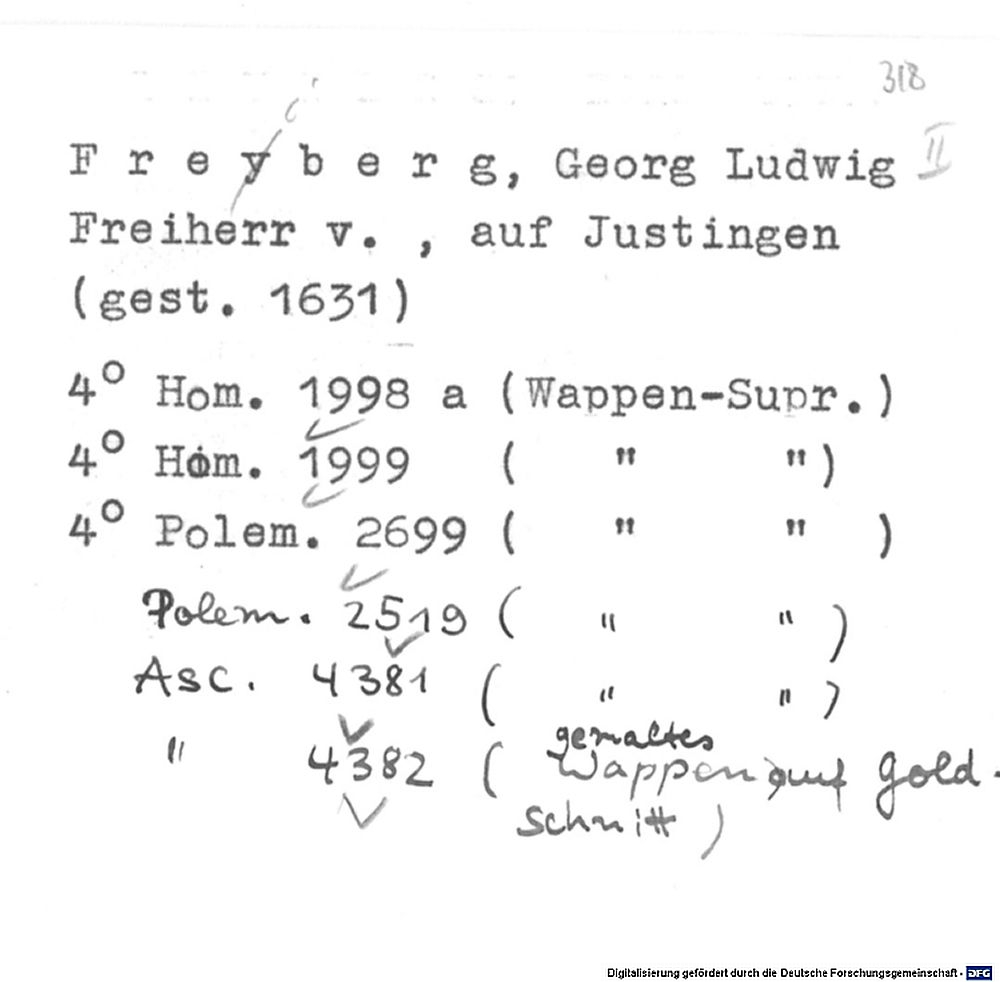 318
F r e y b e r g, Georg Ludwig II
Freiherr v. , auf Justingen
(gest. 1631)
4° Hom. 1998 a (Wappen-Supr.)
4° Hom. 1999 ( " ")
4° Polem. 2699 ( " " )
Polem. 2519 ( " " )
Asc. 4381 ( " " )
" 4382 ( gemaltes
Wappen auf Gold-
schnitt )
Digitalisierung gefördert durch die Deutsche Forschungsgemeinschaft - DFG